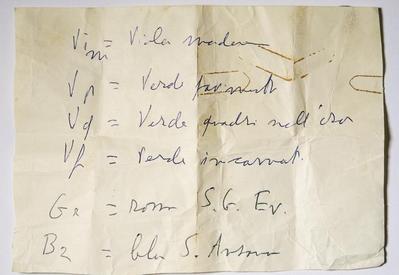 Vim = Viola madonna
Vp = Verde paviment
Vq = Verde quadri nell'
Vf = Verde incarnat.
G2 = rosso S. G. Ev.
B2 = blu S. Antonio